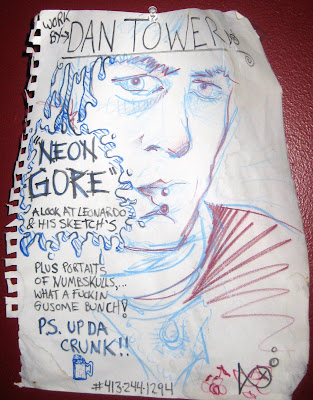 WORK
BY→ DAN TOWERS
"NEON
GORE"
A LOOK AT LEONARDO
& HIS SKETCH'S
PLUS PORTAITS
OF NUMBSKULLS,...
WHAT A FUCKIN
GUSOME BUNCH!
P.S. UP DA
CRUNK!!
#413-244-1294